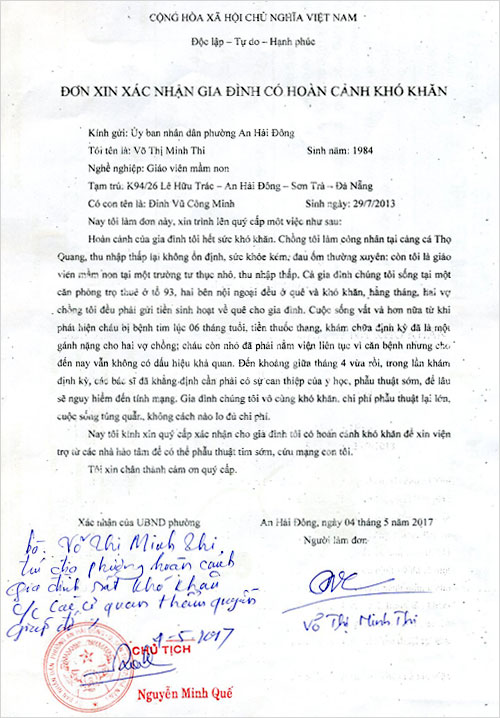 CỘNG HÒA XÃ HỘI CHỦ NGHĨA VIỆT NAM
Độc lập – Tự do – Hạnh phúc
ĐƠN XIN XÁC NHẬN GIA ĐÌNH CÓ HOÀN CẢNH KHÓ KHĂN
Kính gửi: Ủy ban nhân dân phường An Hải Đông
Tôi tên là: Võ Thị Minh Thi Sinh năm: 1984
Nghề nghiệp: Giáo viên mầm non
Tạm trú: K94/26 Lê Hữu Trác – An Hải Đông – Sơn Trà – Đà Nẵng
Có con tên là: Đinh Vũ Công Minh Sinh ngày: 29/7/2013
Nay tôi làm đơn này, xin trình lên quý cấp một việc như sau:
Hoàn cảnh của gia đình tôi hết sức khó khăn. Chồng tôi làm công nhân tại cảng cá Thọ
Quang, thu nhập thấp lại không ổn định, sức khỏe kém, đau ốm thường xuyên; còn tôi là giáo
viên mầm non tại một trường tư thục nhỏ, thu nhập thấp. Cả gia đình chúng tôi sống tại một
căn phòng trọ thuê ở tổ 93, hai bên nội ngoại đều ở quê và khó khăn, hằng tháng, hai vợ
chồng tôi đều phải gửi tiền sinh hoạt về quê cho gia đình. Cuộc sống vất vả hơn nữa từ khi
phát hiện cháu bị bệnh tim lúc 06 tháng tuổi, tiền thuốc thang, khám chữa định kỳ đã là một
gánh nặng cho hai vợ chồng; cháu còn nhỏ đã phải nằm viện liên tục vì căn bệnh nhưng cho
đến nay vẫn không có dấu hiệu khả quan. Đến khoảng giữa tháng 4 vừa rồi, trong lần khám
định kỳ, các bác sĩ đã khẳng định cần phải có sự can thiệp của y học, phẫu thuật sớm, để lâu
sẽ nguy hiểm đến tính mạng. Gia đình chúng tôi vô cùng khó khăn, chi phí phẫu thuật lại lớn,
cuộc sống túng quẫn, không cách nào lo đủ chi phí.
Nay tôi kính xin quý cấp xác nhận cho gia đình tôi có hoàn cảnh khó khăn để xin viện
trợ từ các nhà hảo tâm để có thể phẫu thuật tim sớm, cứu mạng con tôi.
Tôi xin chân thành cảm ơn quý cấp.
Xác nhận của UBND phường An Hải Đông, ngày 04 tháng 5 năm 2017
Người làm đơn
bà: Võ Thị Minh Thi
địa phương hoàn cảnh
gia đình rất khó khăn
các cơ quan thẩm quyền
giúp đỡ
-5-2017
CHỦ TỊCH
Nguyễn Minh Quế
Võ Thị Minh Thi